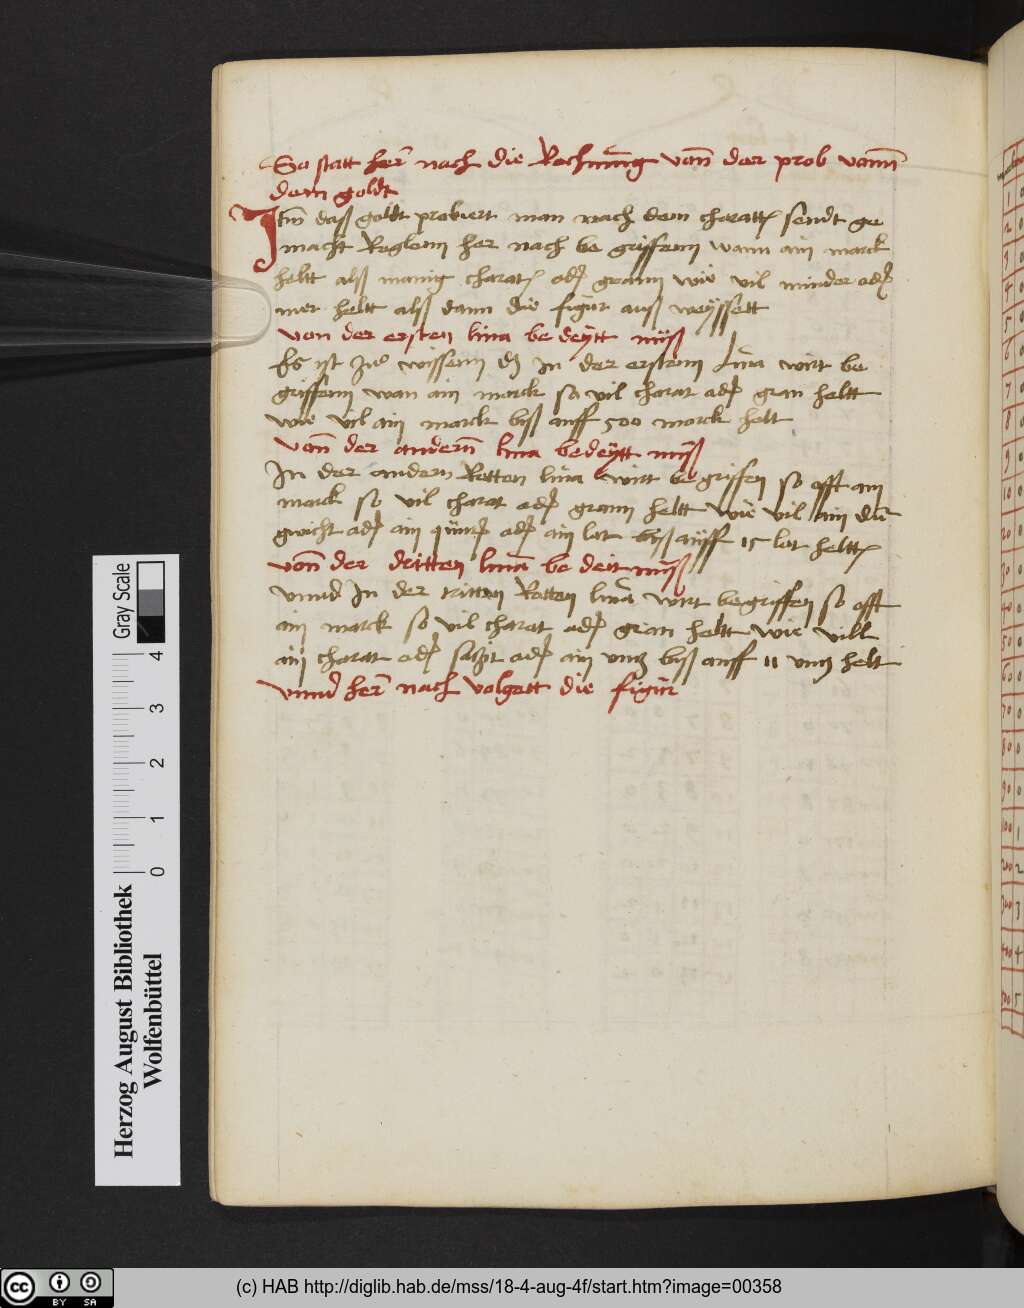 So statt her nach die Rechnung vonn der prob vonn
dem goldt
Itm daß goldt probiert man nach dem charatt sendt ge
macht Reglenn her nach be griffenn wann ain marck
heltt alß manig charat od grann wie vil minder od
mer heltt alß dann die figur auß weyssett
von der ersten lina be deytt miß
Es yst zu wissenn dz In der erstenn Lina wirt be
griffenn wan ain marck so vil charat od gran heltt
wie vil ain marck biß auff 500 marck helt
vonn der andernn lina bedeytt miß
In der andern Rotten lina wirt begriffen so offt ain
marck so vil charat od grann heltt wie vil ain die
gwicht od ain quint od ain lot biß auff 15 lot heltt
vonn der dritten lina be deit miß
vnnd In der tritten Rotten lina wirt begriffen so offt
ain marck so vil charat od gran heltt wie vill
ain charat od od ain vnz biß auff 11 vnz helt
vnnd her nach volgett die figur
Gray Scale
4
3
2
1
0
Herzog August Bibliothek
Wolfenbüttel
1
2
3
4
5
6
7
8
9
10
20
30
40
50
60
70
80
90
100 1
200 2
300 3
400 4
500 5
cc BY SA
(c) HAB http://diglib.hab.de/mss/18-4-aug-4f/start.htm?image=00358